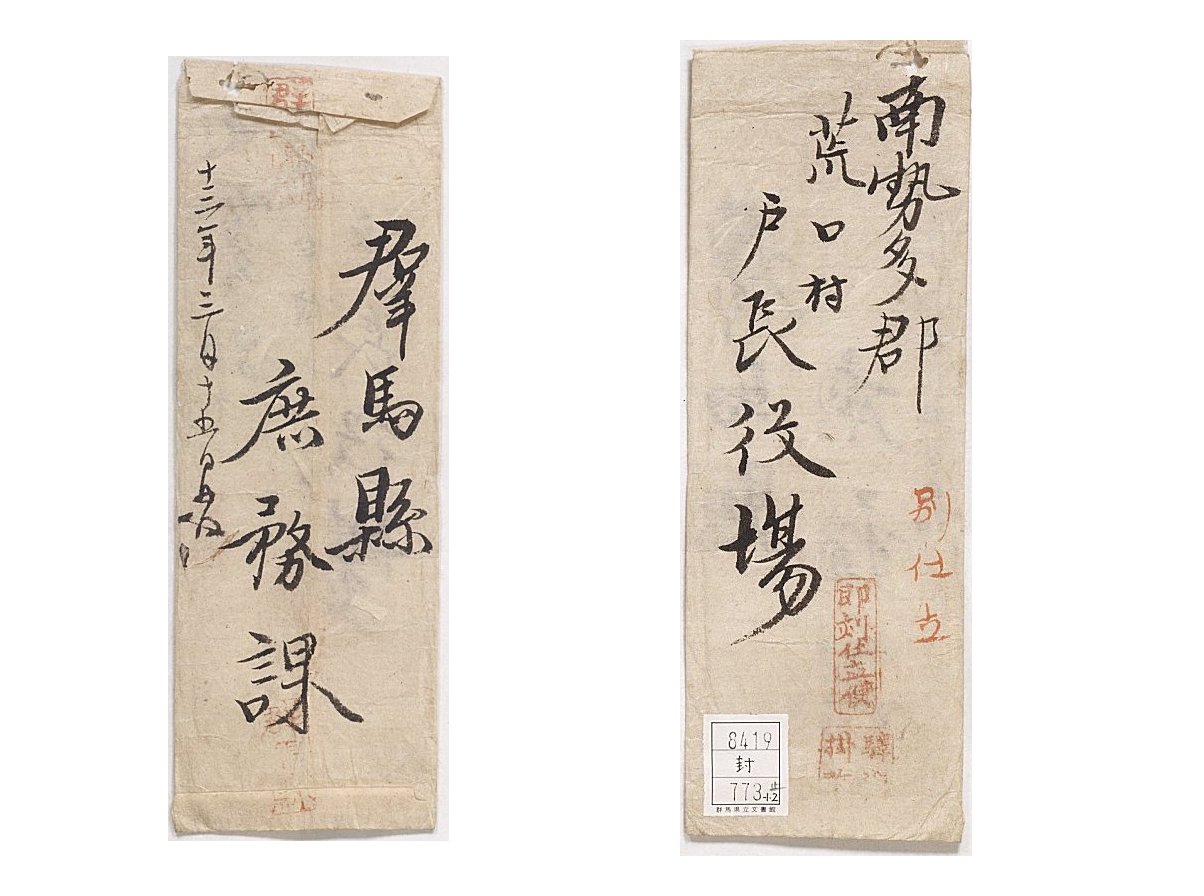 羣馬縣
庶務課
十三年三月十五日
南勢多郡
荒口村
戸長役場
別仕立
即刻仕立便
8419
封
773
群馬県立文書館